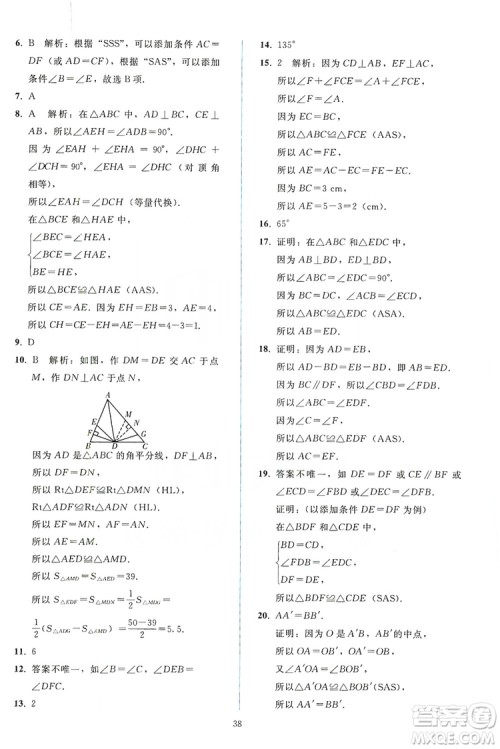 6. B 解析：根据“SSS”，可以添加条件 AC＝
DF（或 AD＝CF），根据“SAS”，可以添加
条件∠B＝∠E，故选 B 项.
7. A
8. A 解析：在△ABC 中，因为 AD⊥BC，CE⊥
AB，所以∠AEH＝∠ADB＝90°.
因为∠EAH＋∠AHE＝90°，∠DHC＋
∠DCH＝90°，∠EHA＝∠DHC（对顶角
相等），
所以∠EAH＝∠DCH（等量代换）.
在△BCE 和△HAE 中，
∠BEC＝∠HEA，
∠BCE＝∠HAE，
BE＝EH，
所以△BCE≌△HAE（AAS）.
所以 CE＝AE. 因为 EH＝EB＝3，AE＝4，
所以 CH＝CE－EH＝AE－EH＝4－3＝1.
9. D
10. B 解析：如图，作 DM＝DE 交 AC 于点
M，作 DN⊥AC 于点 N，
A
E M
F N
G
B D C
因为 AD 是△ABC 的角平分线，DF⊥AB，
所以 DF＝DN，
所以 Rt△DEF≌Rt△DMN（HL），
Rt△ADF≌Rt△ADN（HL）.
所以 EF＝MN，AF＝AN.
所以 AE＝AM.
所以△AED≌△AMD.
所以 S△AMD＝S△AED＝39.
所以 S△EDF＝S△DNM＝1/2 S△DMG＝
1/2（S△ADG－S△ADM）＝(50－39)/2＝5.5.
11. 6
12. 答案不唯一，如∠B＝∠C 或∠BED＝
∠DFC
13. 2
14. 135°
15. 2 解析：因为 CD⊥AB，EF⊥AC，
所以∠F＋∠FCE＝∠A＋∠FCE＝90°，
所以∠A＝∠F.
因为 EC＝BC，
所以△ABC≌△FCE（AAS）.
所以 AC＝FE.
因为 AE＝AC－EC＝FE－EC，
所以 AE＝5－3＝2（cm）.
16. 65°
17. 证明：在△ABC 和△EDC 中，
因为 AB⊥BD，ED⊥BD，
所以∠ABC＝∠EDC＝90°.
因为∠ACB＝∠ECD，BC＝DC，
所以△ABC≌△EDC（ASA）.
所以 AB＝ED.
18. 证明：因为 AD＝EB，
所以 AD－BD＝EB－BD，即 AB＝ED.
因为 BC∥DF，所以∠CBD＝∠FDB.
所以∠ABC＝∠EDF.
因为∠C＝∠F，
所以△ABC≌△EDF（AAS）.
所以 AC＝EF.
19. 答案不唯一，如 DE＝DF 或 CE∥BF 或
∠ECD＝∠DBF 或∠DEC＝∠DFB
证明：（以添加条件 DE＝DF 为例）
在△BDF 和△CDE 中，
BD＝CD，
∠FDB＝∠EDC，
DF＝DE，
所以△BDF≌△CDE（SAS）.
20. AA′＝BB′.
证明：因为 O 是 AB′，A′B 的中点，
所以 OA＝OB′，OA′＝OB，
又∠A′OA＝∠BOB′，
所以△A′OA≌△BOB′（SAS），
所以 AA′＝BB′.
38